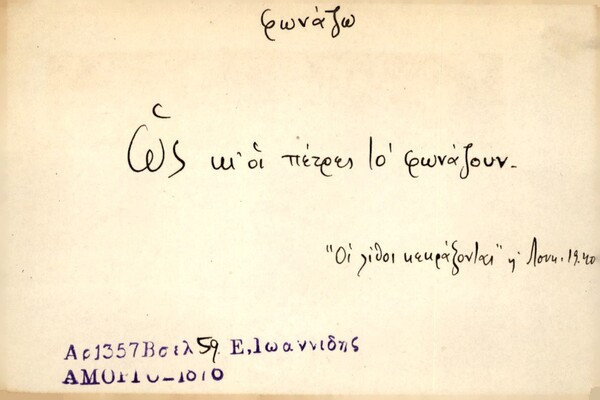 φωνάζω
Ὡς κι' οἱ πέτρες τὸ φωνάζουν.
"Οἱ λίθοι κεκράξονται" Λουκ. 19.40
Αρ1357Βσιλ 59. Ε,Ιωαννιδης